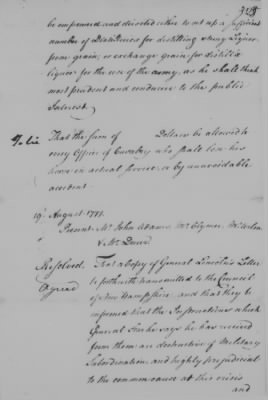 be impowered and directed either to set up a sufficient
number of Distilleries for distilling strong Liquor
from grain, or exchange grain for distill'd
liquor for the use of the army, as he shall think
most prudent and conducive to the public
Interest.
That the sum of Dollars be allowed to
every Officer of Cavalry who shall lose his
horse in actual service or by unavoidable
accident.
19. August 1777.
Present. Mr. John Adams, Mr. Clymer, Mr. Wilson
& Mr. Duer
Resolved. That a copy of General Lincoln's Letter
Agreed be forthwith transmitted to the Council
of New Hampshire, and that they be
informed that the Instructions which
General Stark says he has received
from them are destructive of Military
Subordination, and highly prejudicial
to the common cause at this crisis
and